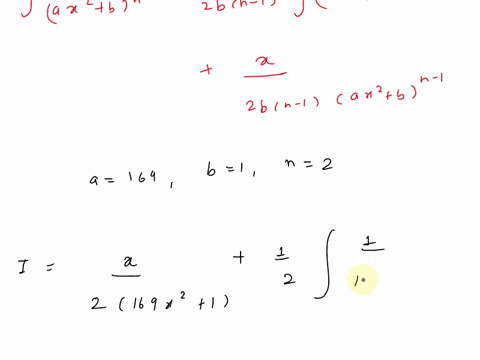 ∫ (ax²+b)ⁿ 2b(n-1) ∫ (
+ x / 2b(n-1) (ax²+b)ⁿ⁻¹
a = 169, b = 1, n = 2
I = x / 2(169x²+1) + 1/2 ∫ 1 / 1